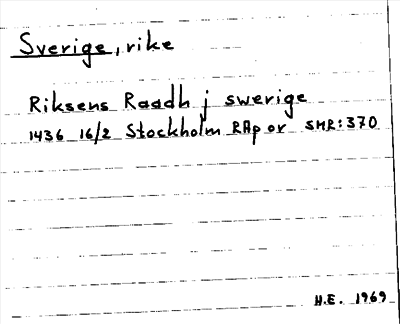 Sverige, rike
Riksens Raadh j swerige
1436 16/2 Stockholm RAp or SMR:370
H.E. 1969